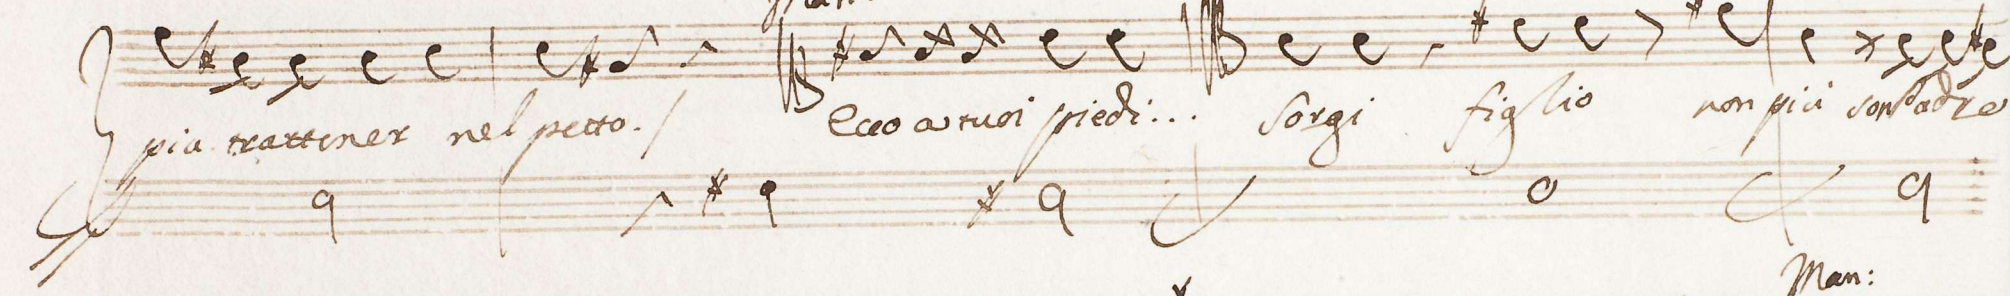 più trattener nel petto. / Ecco a tuoi piedi... Sorgi figlio non più son Padre
Man: